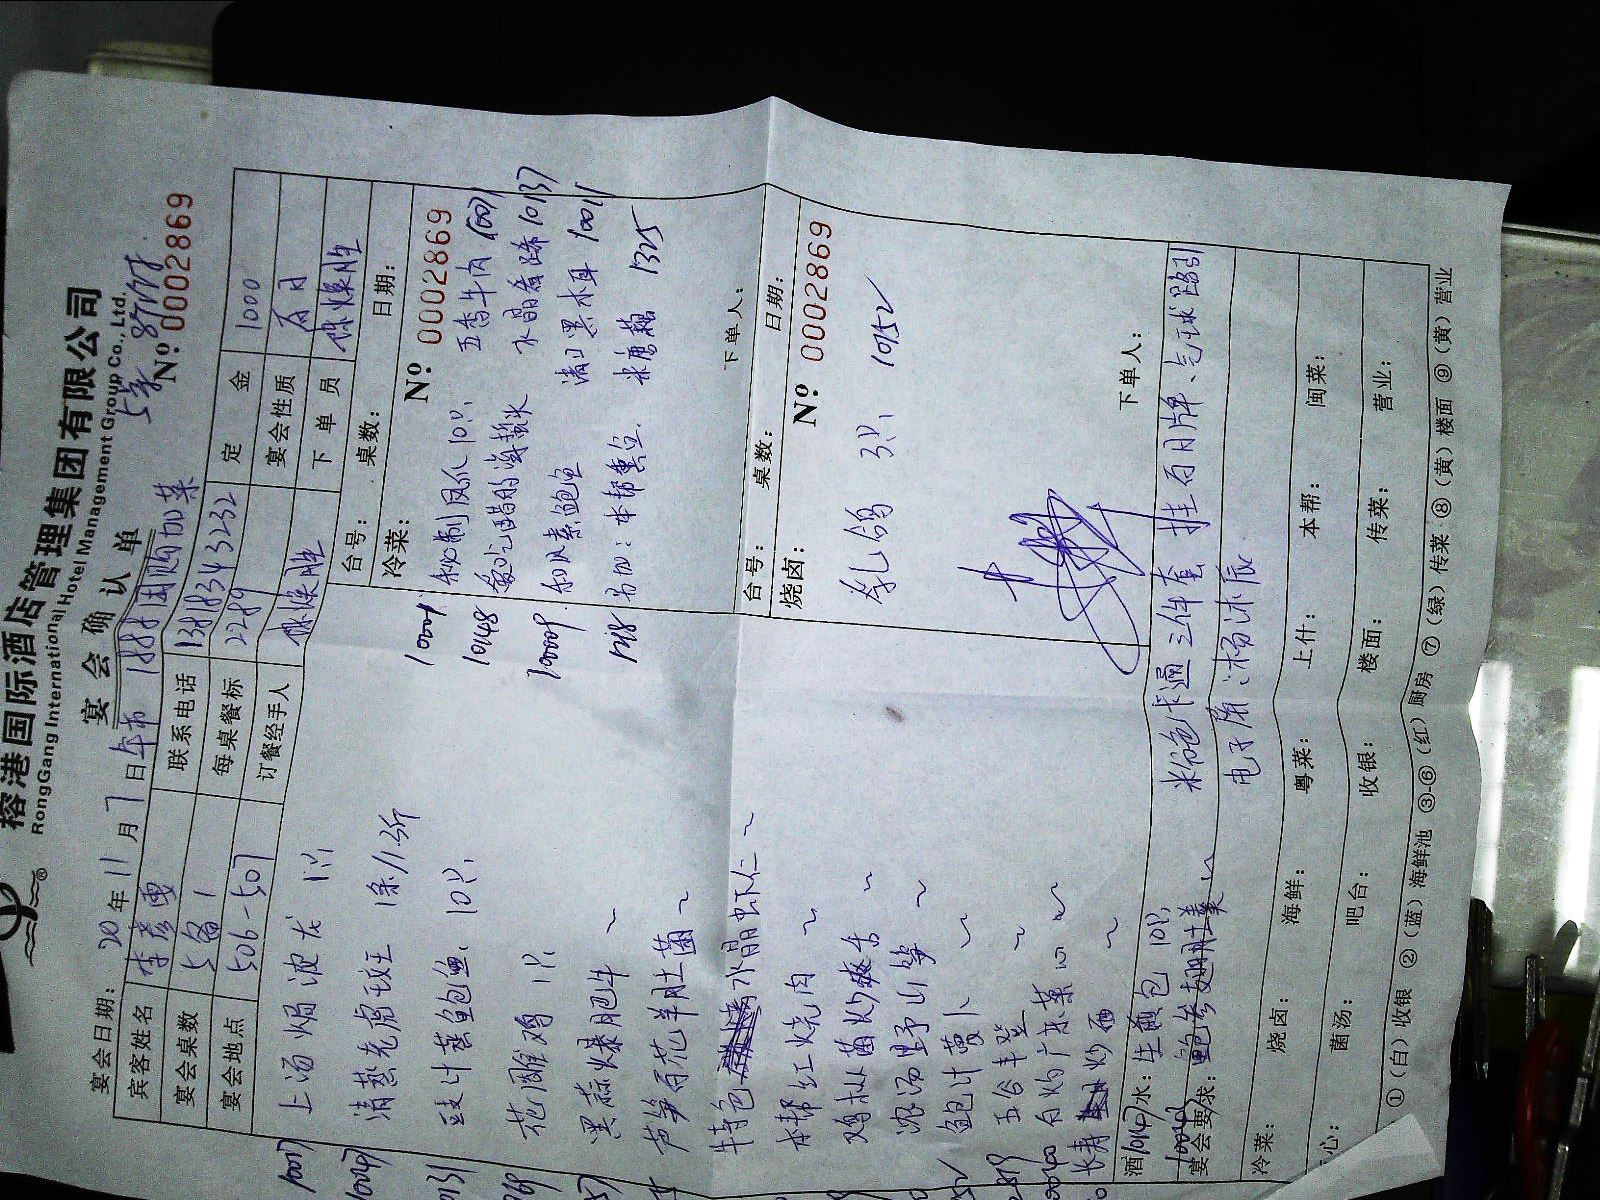 榕港国际酒店管理集团有限公司
RongGang International Hotel Management Group Co.,Ltd.
宴会确认单
5桌
№ 0002869
宴会日期: 20 年 11 月 7 日 午市 1888团购加菜
宾客姓名 李彦
联系电话 13818343232
定金 1000
宴会桌数 5备1
每桌餐标 2289
宴会性质 百日
宴会地点 506-507
订餐经手人
下单员
台号: 桌数: 日期:
冷菜: № 0002869
10001 秘制凤爪10只 五香牛肉 1007
10148 老醋海蜇头 水晶 10137
10009 素鲍鱼 清口黑木耳 10011
另加:本帮熏鱼 1325
下单人:
台号: 桌数: 日期:
烧卤: № 0002869
乳鸽 3只 10152
下单人:
上汤焗波龙 1只
清蒸老虎斑 1条/1.3斤
豉汁蒸鲍鱼 10只
花雕鸡 1只
黑蒜爆肥牛 ~
芦笋百花羊肚菌 ~
特色水晶虾仁 ~
本帮红烧肉 ~
鸡枞菌炒 ~
浓汤野山笋 ~
鲍汁萝卜 ~
五谷丰登 ~
白灼广东菜心 ~
长寿炒面 ~
酒水: 生煎包 10只
宴会要求:
米色卡通三件套 挂百日牌、气球路引
电子屏:杨沐辰
冷菜: 烧卤: 海鲜: 粤菜: 上什: 本帮: 闽菜:
点心: 菌汤: 吧台: 收银: 楼面: 传菜: 营业:
①(白)收银 ②(蓝)海鲜池 ③-⑥(红)厨房 ⑦(绿)传菜 ⑧(黄)楼面 ⑨(黄)营业